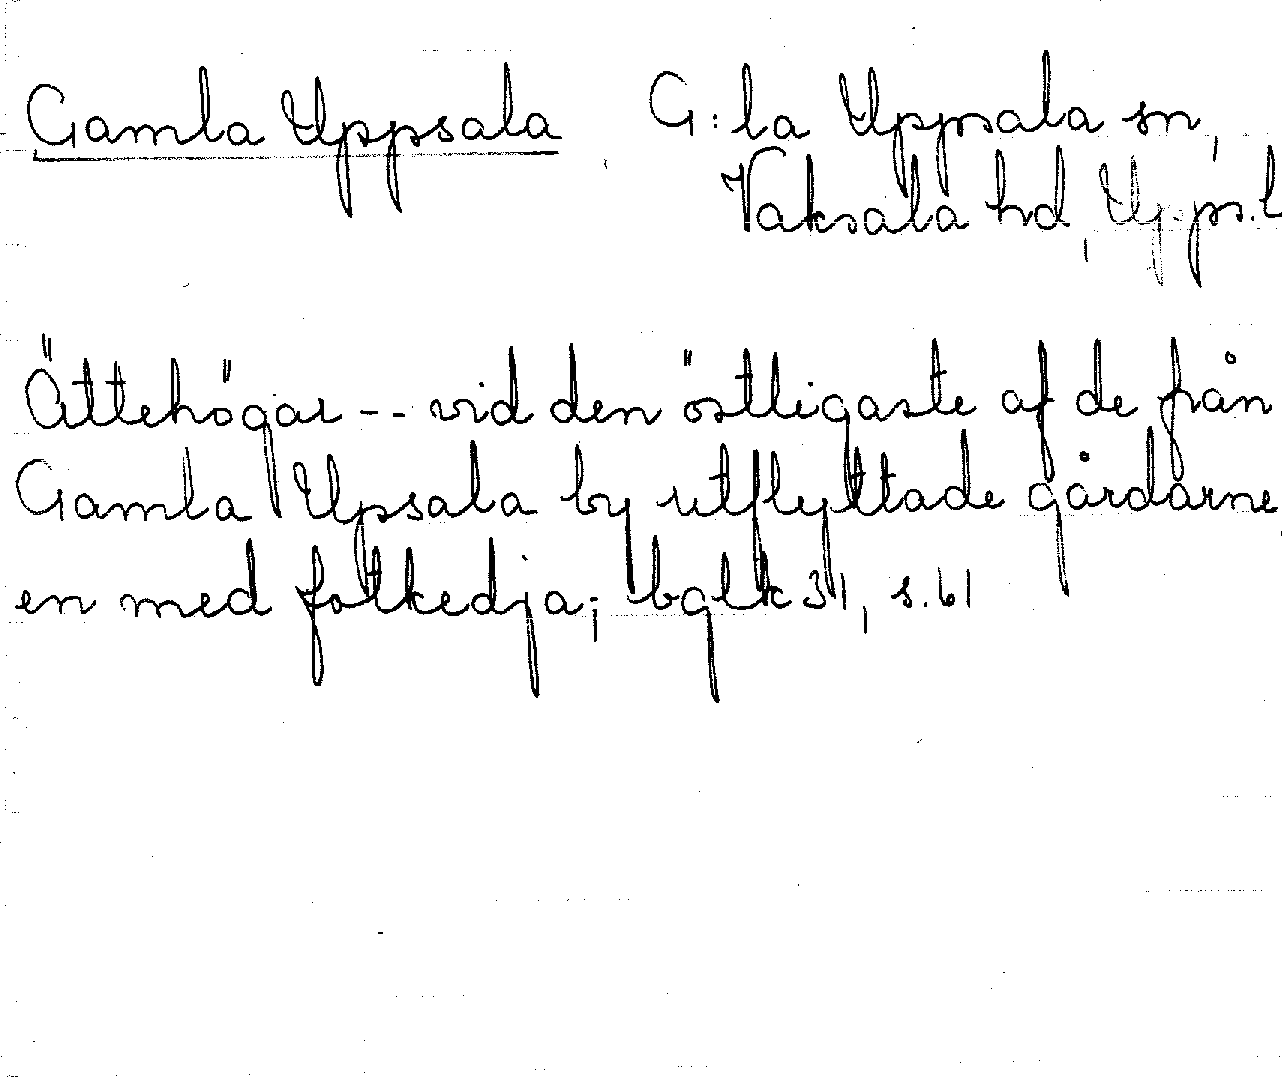 Gamla Uppsala G:la Uppsala sn,
Vaksala hd, Upps.l
Ättehögar -- vid den östligaste af de från
Gamla Upsala by utflyttade gårdarne
en med fotkedja; bglk 31, s. 61